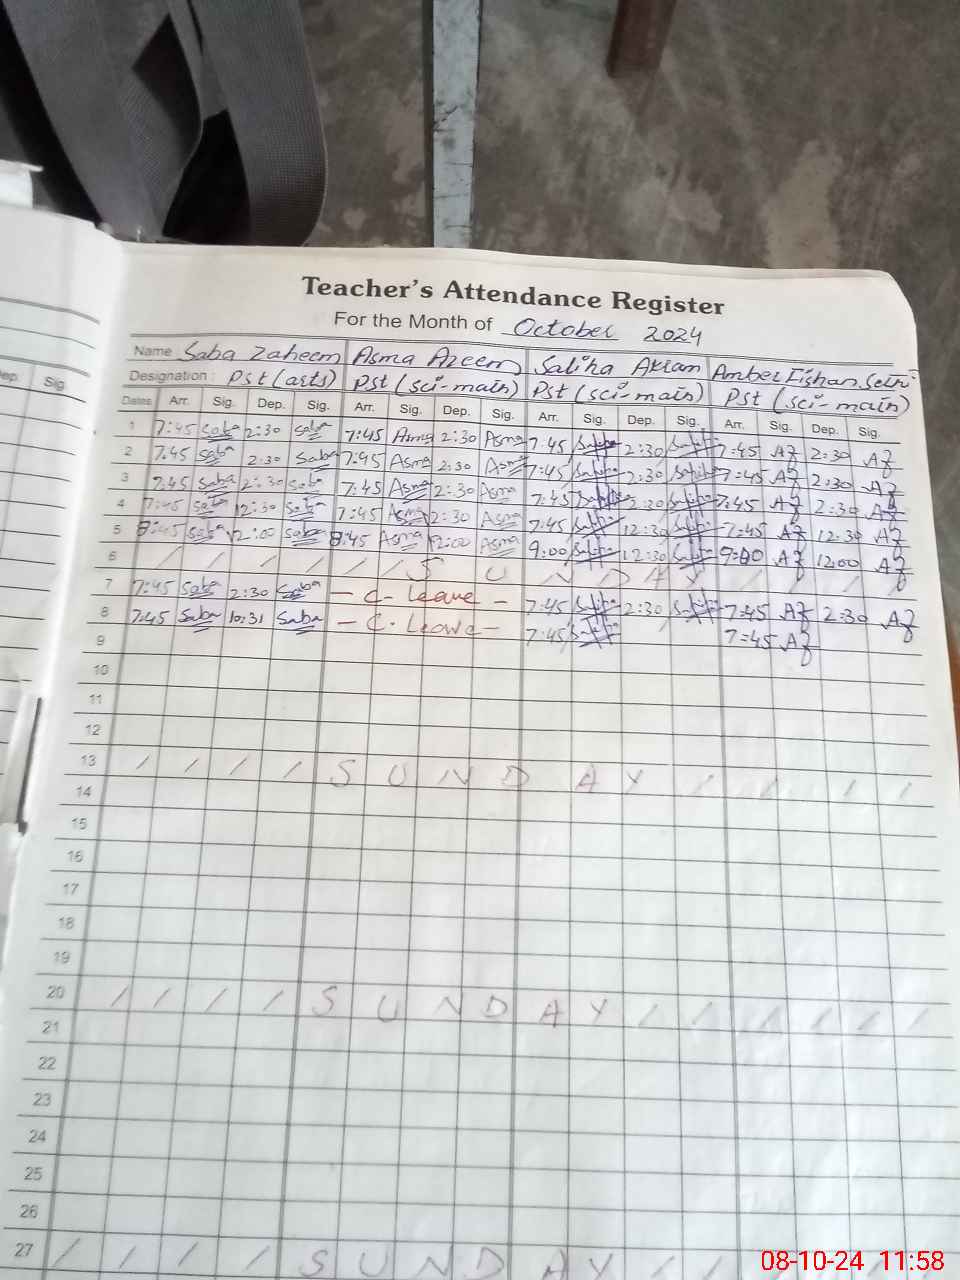 Teacher's Attendance Register
For the Month of October 2024
Name Saba Zaheem Asma Azeem Saliha Akram Amber Fishan
Designation: Pst (arts) Pst (sci-math) Pst (sci-math) Pst (sci-math)
ep. Sig.
Dates Arr. Sig. Dep. Sig. Arr. Sig. Dep. Sig. Arr. Sig. Dep. Sig. Arr. Sig. Dep. Sig.
1 7:45 Saba 2:30 Saba 7:45 Asma 2:30 Asma 7:45 2:30 7:45 AF 2:30 AF
2 7:45 Saba 2:30 Saba 7:45 Asma 2:30 Asma 7:45 2:30 7:45 AF 2:30 AF
3 7:45 Saba 2:30 Saba 7:45 Asma 2:30 Asma 7:45 2:30 7:45 AF 2:30 AF
4 7:45 Saba 12:30 Saba 7:45 Asma 12:30 Asma 7:45 12:30 7:45 AF 12:30 AF
5 8:45 Saba 12:00 Saba 8:45 Asma 12:00 Asma 9:00 12:30 9:00 AF 12:00 AF
6 / / / / / / S U N D A Y / / / /
7 7:45 Saba 2:30 Saba - C. leave - 7:45 2:30 7:45 AF 2:30 AF
8 7:45 Saba 10:31 Saba - C. Leave - 7:45 7:45 AF
9
10
11
12
13 / / / / S U N D A Y / / / /
14
15
16
17
18
19
20 / / / / S U N D A Y / / / / / / /
21
22
23
24
25
26
27 / / / / S U N D A Y / /
08-10-24 11:58